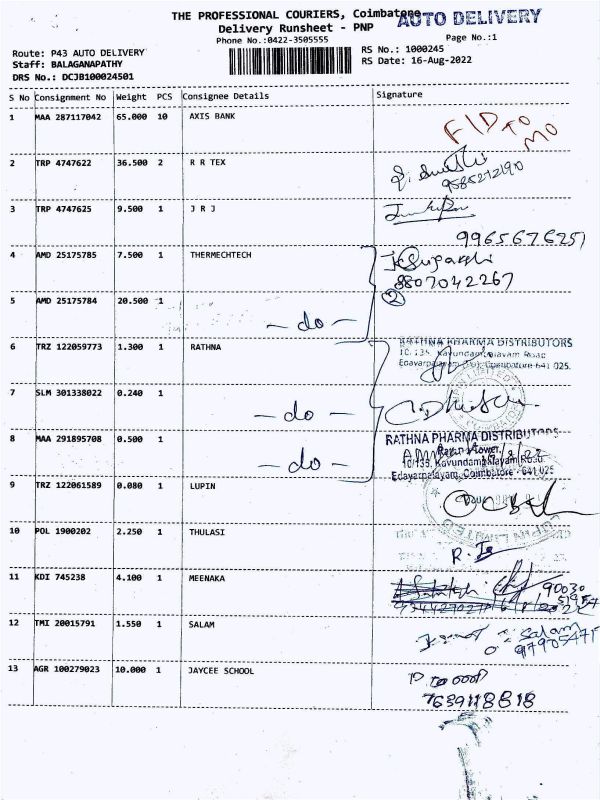 THE PROFESSIONAL COURIERS, Coimbatore
AUTO DELIVERY
Delivery Runsheet - PNP
Phone No.:0422-3505555
Page No.:1
Route: P43 AUTO DELIVERY
RS No.: 1000245
Staff: BALAGANAPATHY
RS Date: 16-Aug-2022
DRS No.: DCJB100024501
S No Consignment No Weight PCS Consignee Details Signature
1 MAA 287117042 65.000 10 AXIS BANK
FID TO MO
2 TRP 4747622 36.500 2 R R TEX
9585272190
3 TRP 4747625 9.500 1 J R J
9965676251
4 AMD 25175785 7.500 1 THERMECHTECH
8807042267
5 AMD 25175784 20.500 1 - do - 2
6 TRZ 122059773 1.300 1 RATHNA
RATHNA PHARMA DISTRIBUTORS
10/135, Kavundampalayam Road
Edayarpalayam (Po), Coimbatore-641 025.
7 SLM 301338022 0.240 1 - do -
8 MAA 291895708 0.500 1 - do -
RATHNA PHARMA DISTRIBUTORS
10/135, Kavundampalayam Road
Edayarpalayam, Coimbatore - 641 025
9 TRZ 122061589 0.080 1 LUPIN
LUPIN LIMITED
10 POL 1900202 2.250 1 THULASI
11 KDI 745238 4.100 1 MEENAKA
90030
12 TMI 20015791 1.550 1 SALAM
Salam
13 AGR 100279023 10.000 1 JAYCEE SCHOOL
7639118818